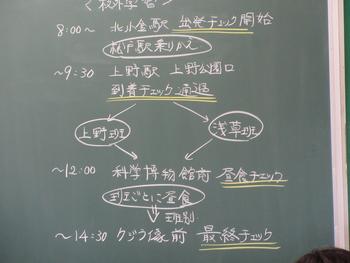 <校外学習>
8:00〜 北小金駅 出発チェック開始
松戸駅乗りかえ
〜9:30 上野駅 上野公園口
到着チェック通過
上野班
浅草班
〜12:00 科学博物館前 昼食チェック
班ごとに昼食
班別
〜14:30 クジラ像前 最終チェック